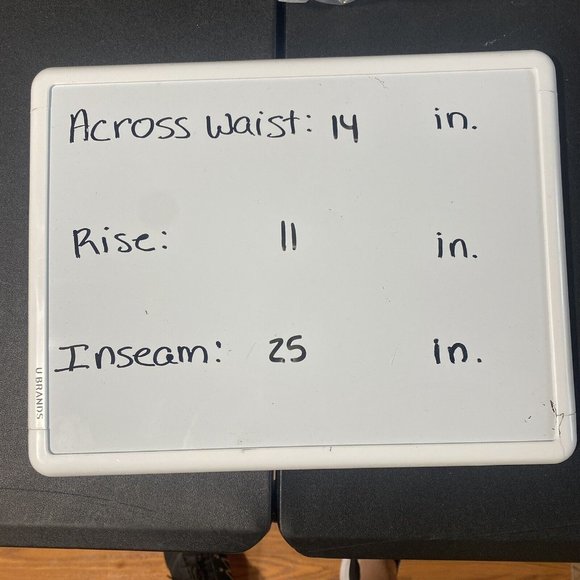 Across Waist: 14 in.
Rise: 11 in.
Inseam: 25 in.
U BRANDS